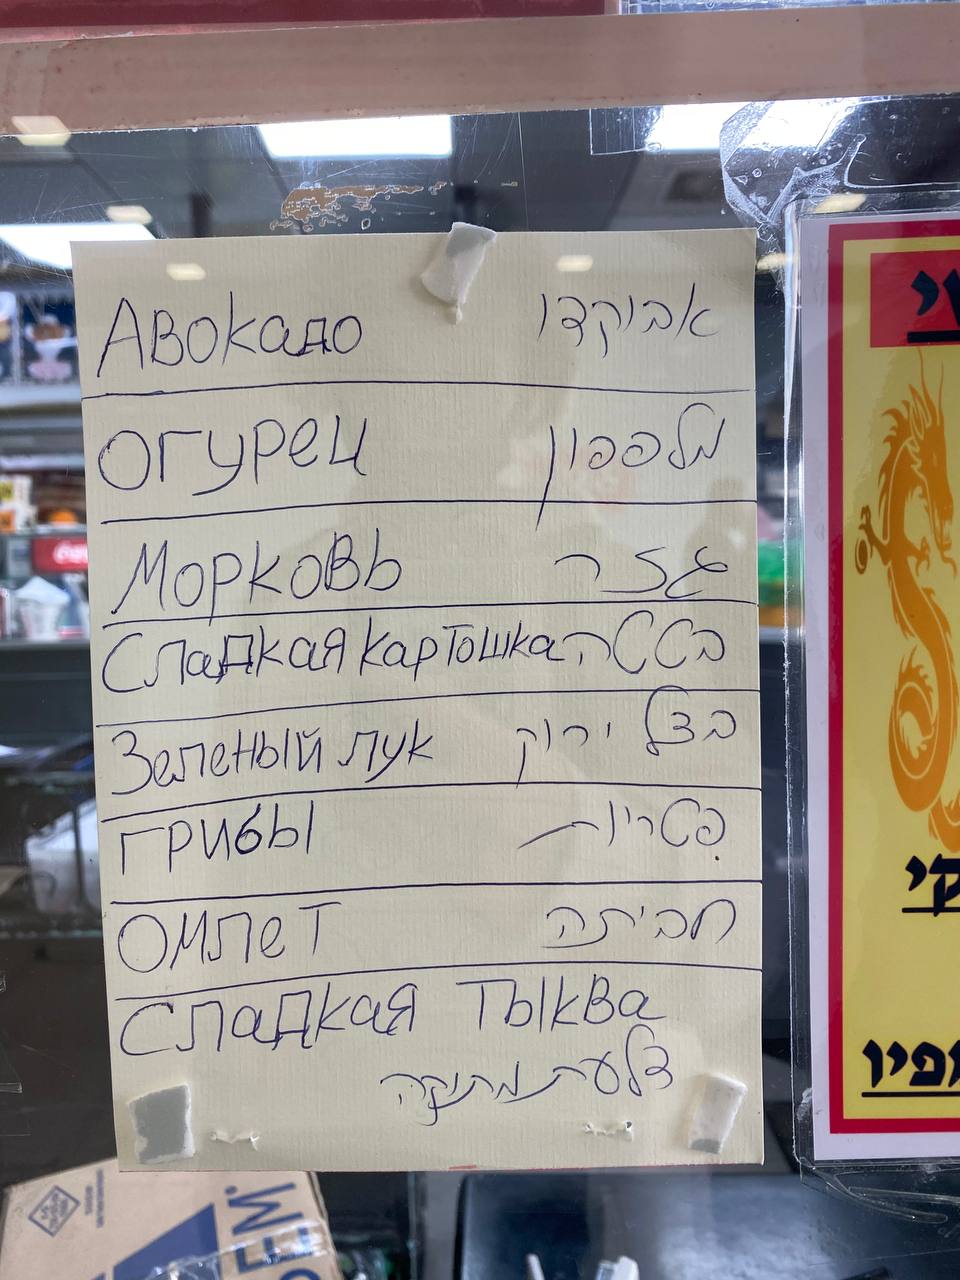 Авокадо אבוקדו
Огурец מלפפון
Морковь גזר
Сладкая картошка בטטה
Зеленый лук בצל ירוק
грибы פטריות
омлет חביתה
Сладкая тыква
דלעת מתוקה